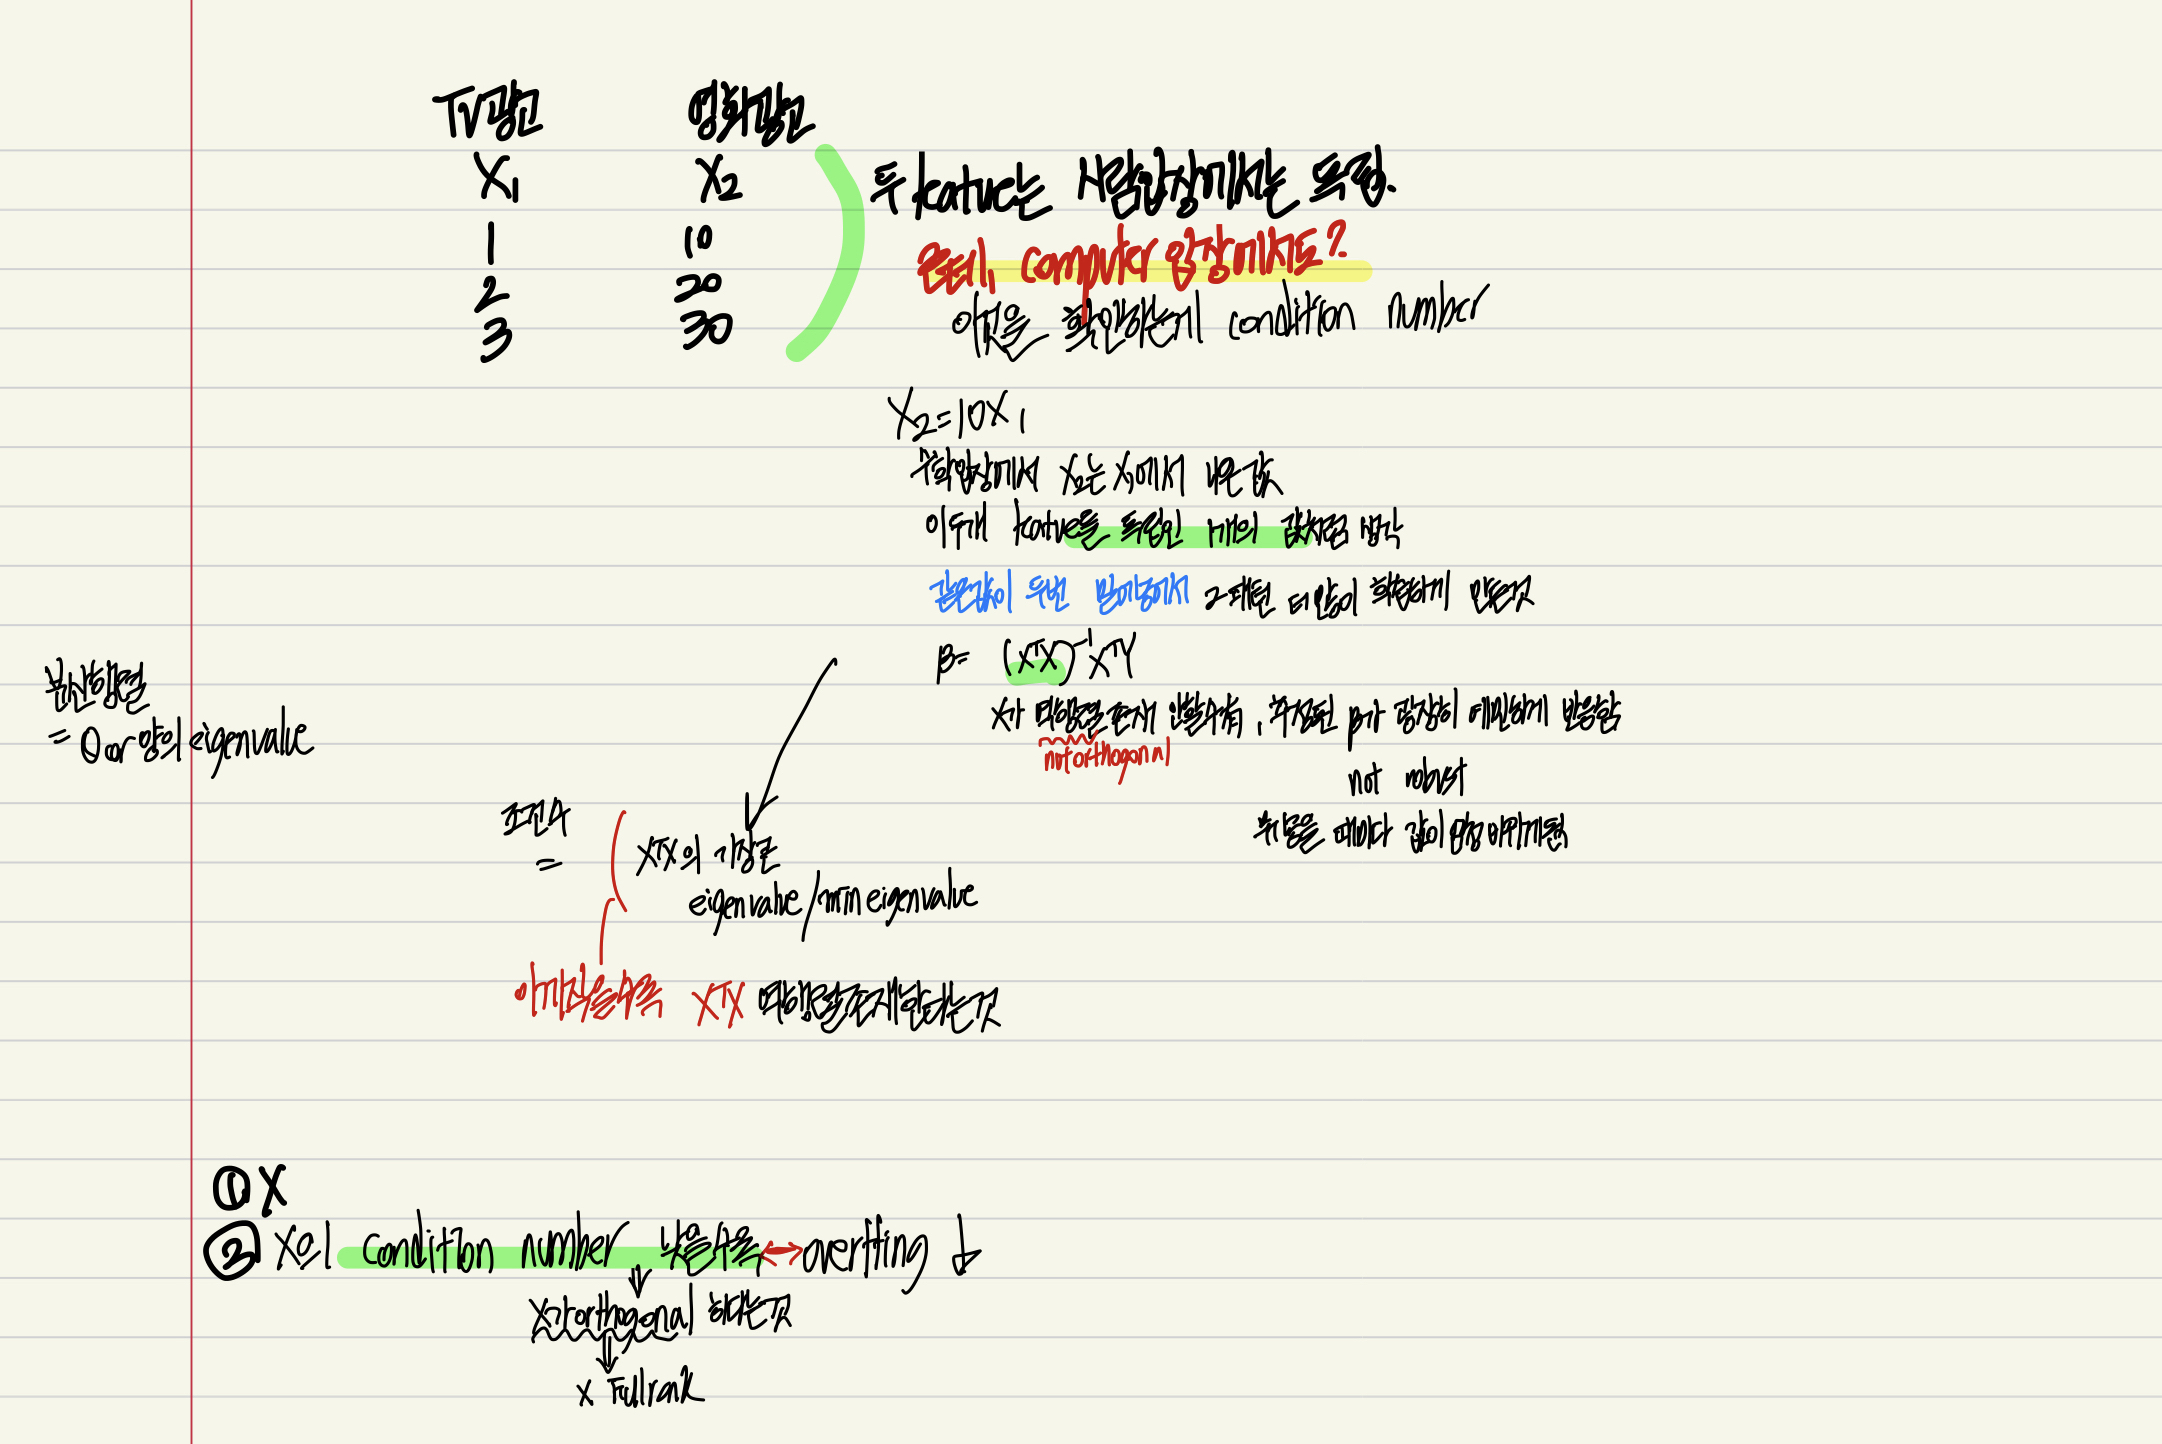 TV광고 영화광고
X1 X2
1 10
2 20
3 30
두 feature는 사람입장에서는 독립.
근데, computer 입장에서도?
이것을 확인하는게 condition number
X2=10X1
수학입장에서 X2는 X1에서 나온값
이두개 feature를 독립인 개의 값처럼 생각
같은값이 두번 들어가서 그패턴 더 많이 학습하게 만든것
β= (XᵀX)⁻¹XᵀY
X가 역행렬존재 안할수有, 추정된 β가 굉장히 예민하게 반응함
not orthogonal
not robust
뒤 값이 바뀌게됨
분산행렬
= 0 or 양의 eigenvalue
조건수
=
XᵀX의 가장큰
eigenvalue/min eigenvalue
이게작을수록 XᵀX 역행렬존재한다는것
① X
② X의 condition number 낮을수록 ↔ overfting ↓
⇓
X가 orthogonal 하다는것
⇓
X Full rank